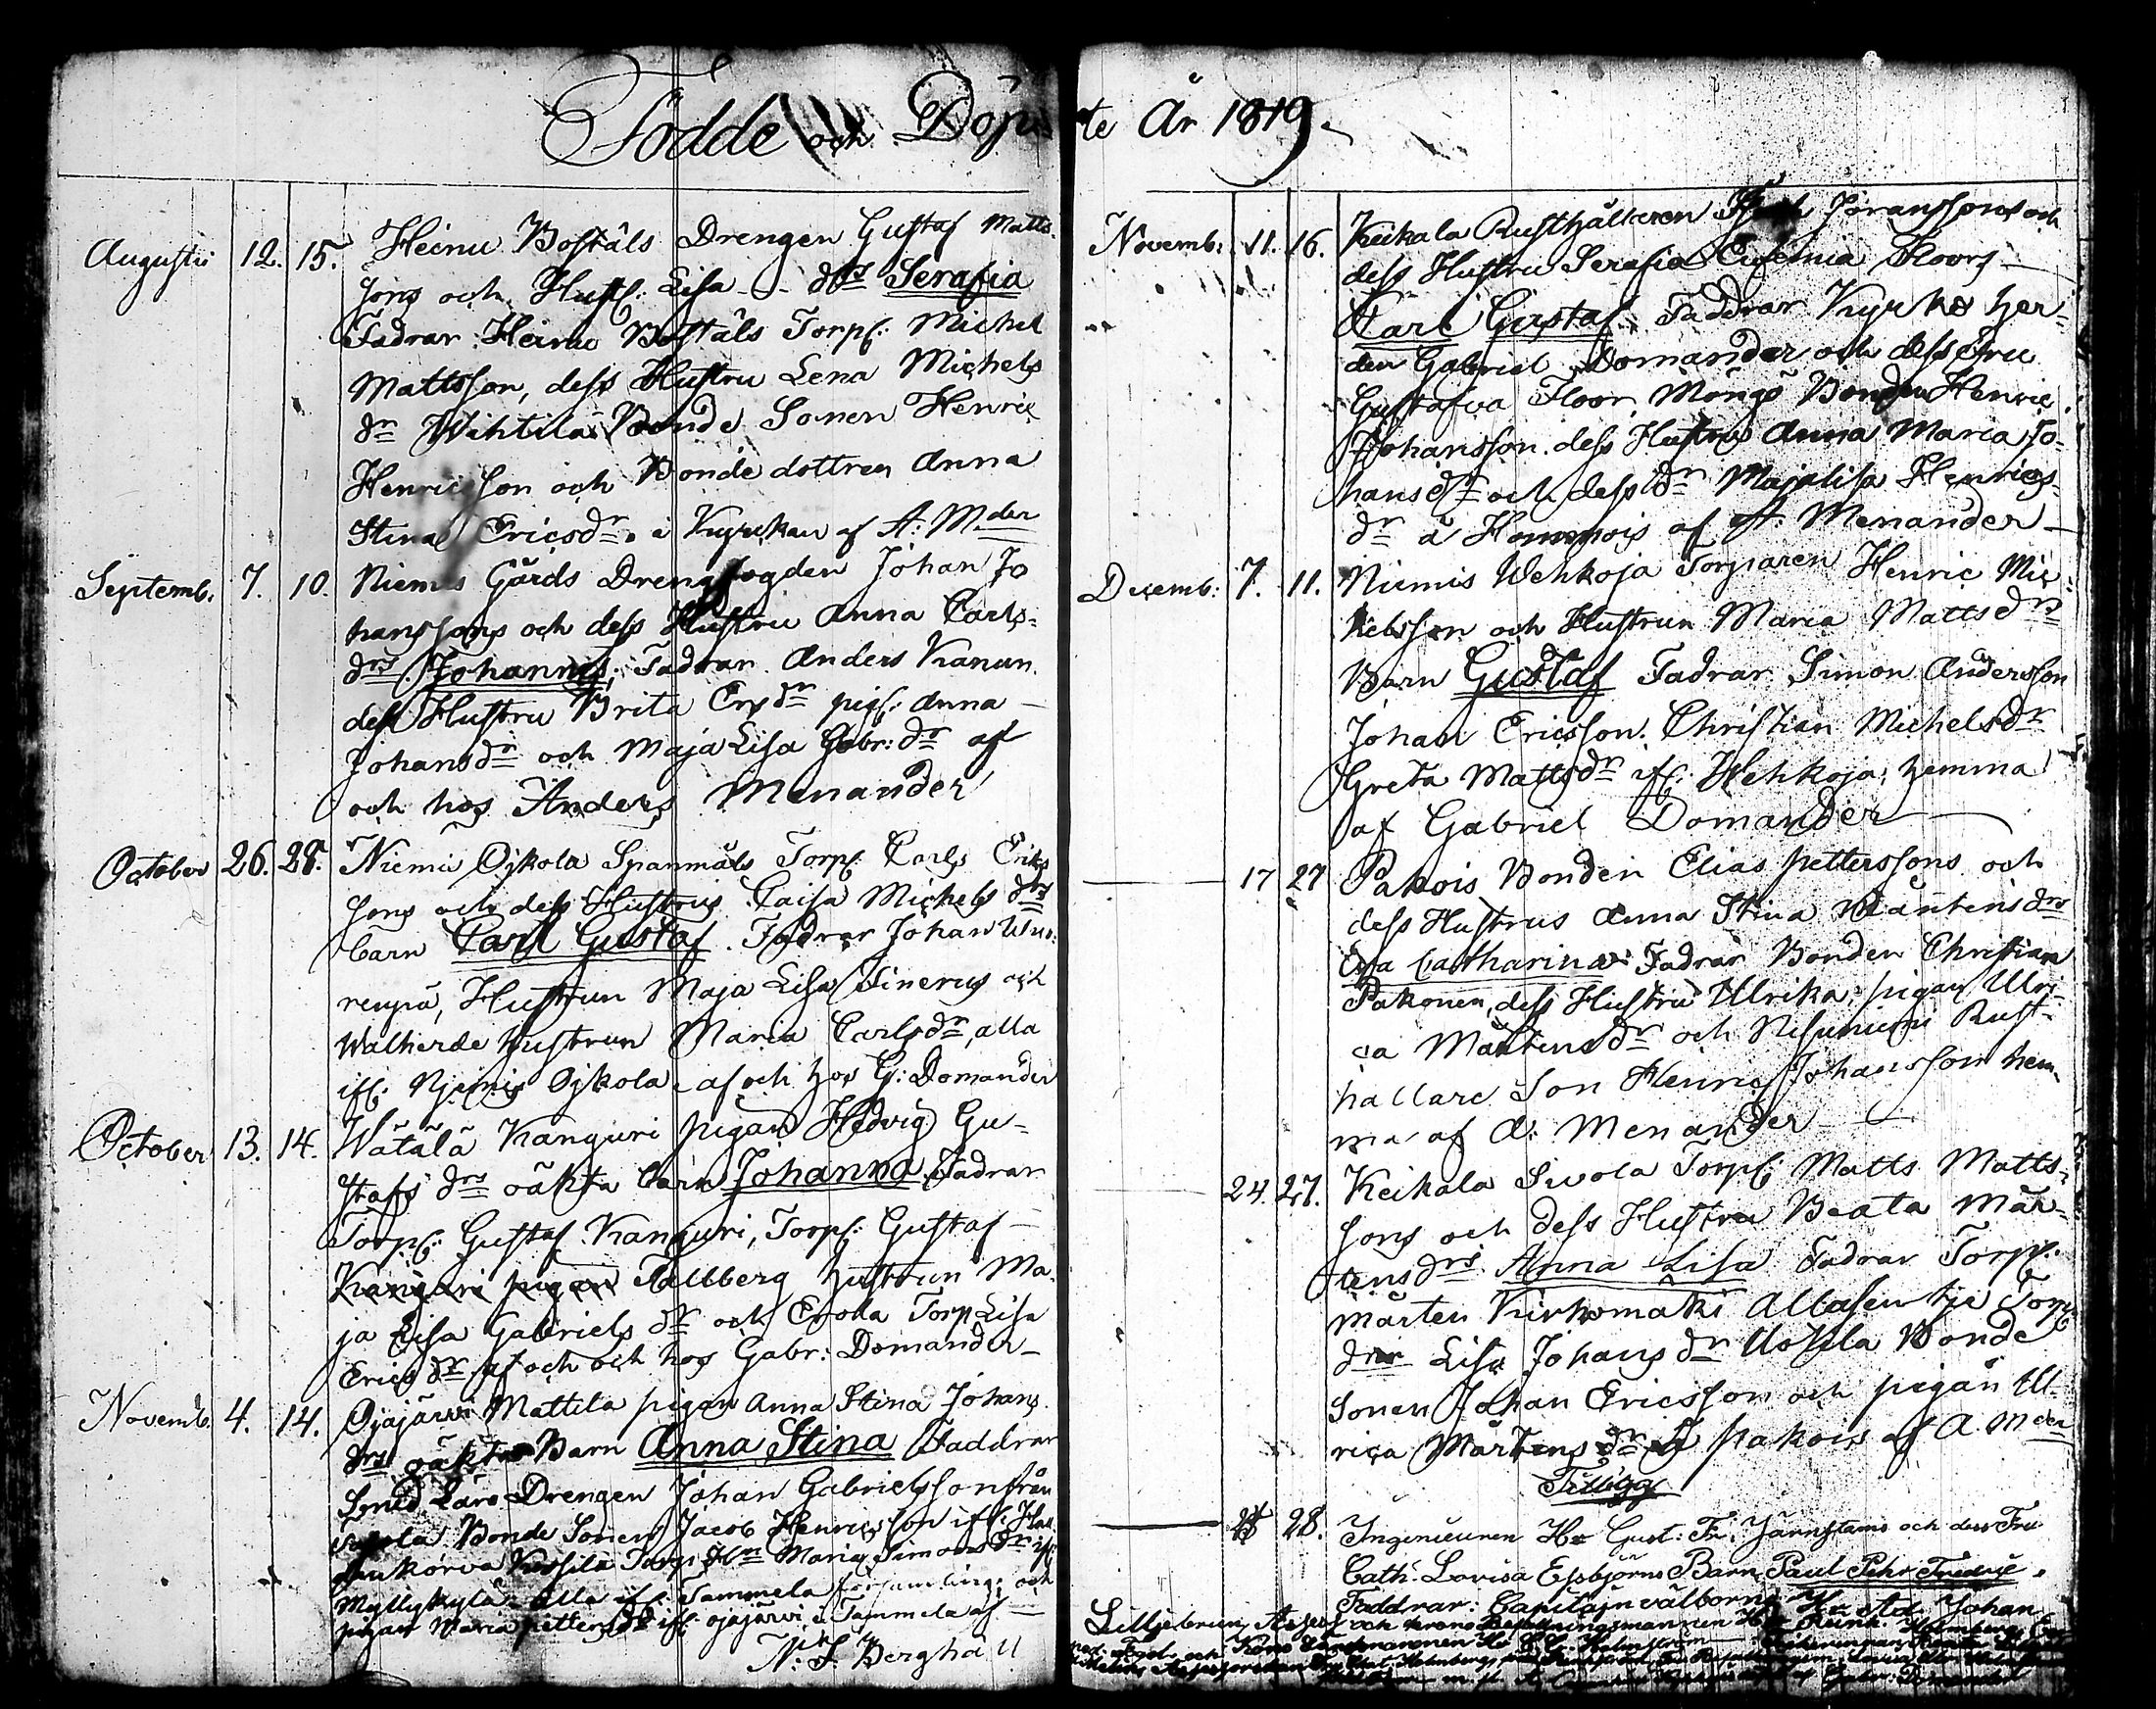 Födde och Döpte År 1819.
Augustii 12. 15. Heinu Boställs Drengen Gustaf Matts
sons och Hust: Lisa - - drs Serafia
Fadrar: Heinu Boställs Torp: Michel
Mattsson, dess Hustru Lena Michels
dr Wihtilä Bonde Sonen Henric
Henricsson och Bonde dottren Anna
Stina Ericsdr i Kyrkan af A: Mder
Septemb. 7. 10. Niemis Gårds Drengfogden Johan Jo
hanssons och dess Hustru Anna Carls-
drs Johannes, Fadrar Anders Kanun
dess Hustru Brita Ersdr pig: Anna
Johansdr och Maja Lisa Gabr: dr af
och hos Anders Menander
October 26. 28. Niemis Ojkola Spanmåls Torp: Carls Eriks
sons och dess Hustrus Caisa Michels drs
barn Carl Gustaf. Fadrar Johan
Hustrun Maja Lisa och
Hustrun Maria Carlsdr, alla
if: Njemis Ojkola af och hos G: Domander
October 13. 14. Wätälä Kanguri pigan Hedvig Gu-
stafs drs oäkta barn Johanna Fadrar
Torp: Gustaf Kanguri, Torp: Gustaf
Kanguri pigan Tallberg hustrun Ma
ja Lisa Gabriels dr och Torp Lisa
Erics dr af och och hos Gabr: Domander
Novemb. 4. 14. Ojajärvi Mattila pigan Anna Stina Johans
drs oäkta Barn Anna Stina Faddrar
Smed Lärs Drengen Johan Gabrielsson från
Bonde Sonen Jacob Henricsson if:
Torp: Maria Simons dr if:
Myllykylä alla if: Tammela församling och
pigan Maria petters dr if: Ojajärvi i Tammela af
N: S: Berghäll
Novemb: 11. 16. Keikala Rusthållaren Jöranssons och
dess Hustru Serafia Eufemia Floors
Carl Gustaf. Faddrar Kyrko her-
den Gabriel Domander och dess Fru
Gustafva Floor, Bonden Henric
Johansson dess Hustru Anna Maria Jo-
hansdr och dess dr Majalisa Henrics-
dr å Hommois af A: Menander
Decemb: 7. 11. Niemis Wehkoja Torparen Henric Mic-
kelsson och Hustrun Maria Mattsdrs
Barn Gustaf Fadrar Simon Andersson
Johan Ericsson. Christian Michelsdr
Greta Mattsdr if: Wehkoja, hemma
af Gabriel Domander
17 27 Pakois Bonden Elias petterssons och
dess Hustrus Anna Stina Mårtens drs
Eva Catharina: Fadrar Bonden Christian
Pakonen, dess Hustru Ulrika, pigan Ulri-
ca Mårtensdr och Rust-
hållare Son Henric Johansson hem-
ma af A: Menander
24. 27. Keikala Sivola Torp: Matts Matts-
sons och dess Hustru Beata Mår-
tens drs Anna Lisa Fadrar Torp:
Mårten Kirkomäki
Lisa Johans dr Uotila Bonde
Sonen Johan Ericsson och pigan Ul-
rica Mårtens dr if pakois af A. Mder
Tillägg
28. Ingenieuren Hr Gust: Fr: Järnstams och dess Fru
Cath: Lovisa Elfsbjörns Barn Paul Pehr Fredric.
Faddrar: Capitajn välborne Hr Ad: Johan
och Krono Hr